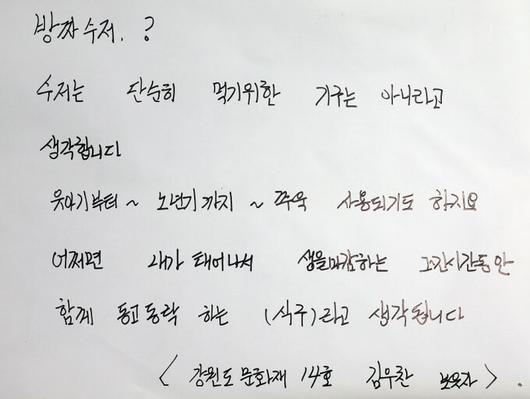 방짜 수저. ?
수저는 단순히 먹기위한 기구는 아니라고
생각합니다
유아기부터 ~ 노년기까지 ~ 쭈욱 사용되기도 하지요
어쩌면 내가 태어나서 생을마감하는 그긴시간동안
함께 동고동락 하는 (식구)라고 생각됩니다
< 강원도 문화재 14호 김우찬 보유자 > .